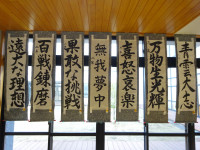 青雲之志
万物生光輝
喜怒哀楽
無我夢中
果敢な挑戦
百戦錬磨
遠大な理想